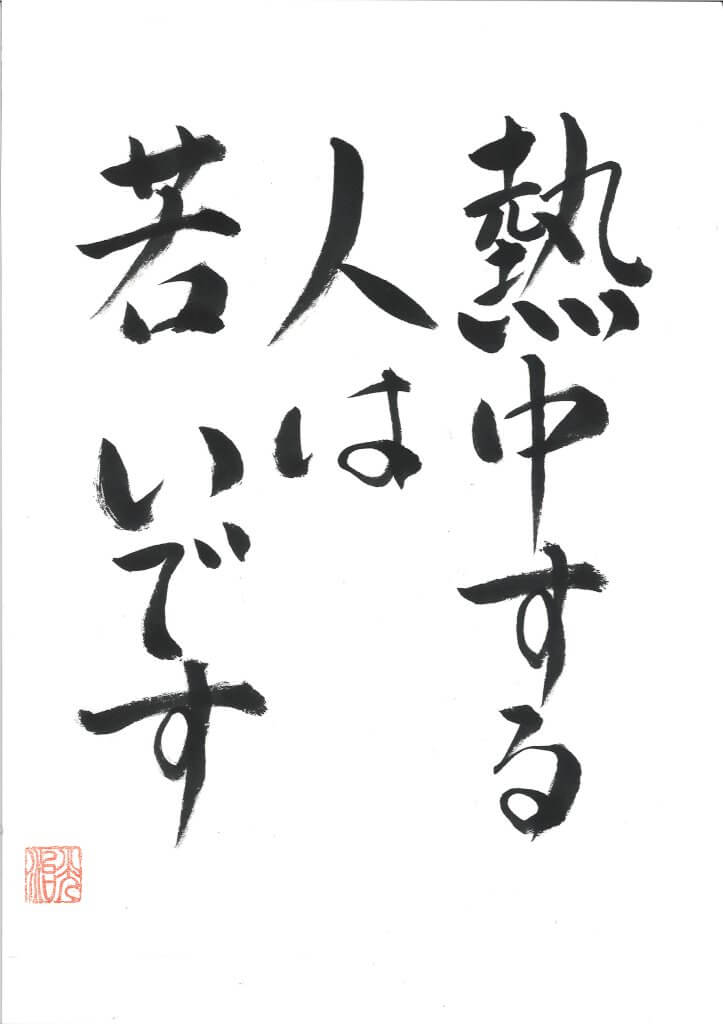 熱中する
人は
若いです